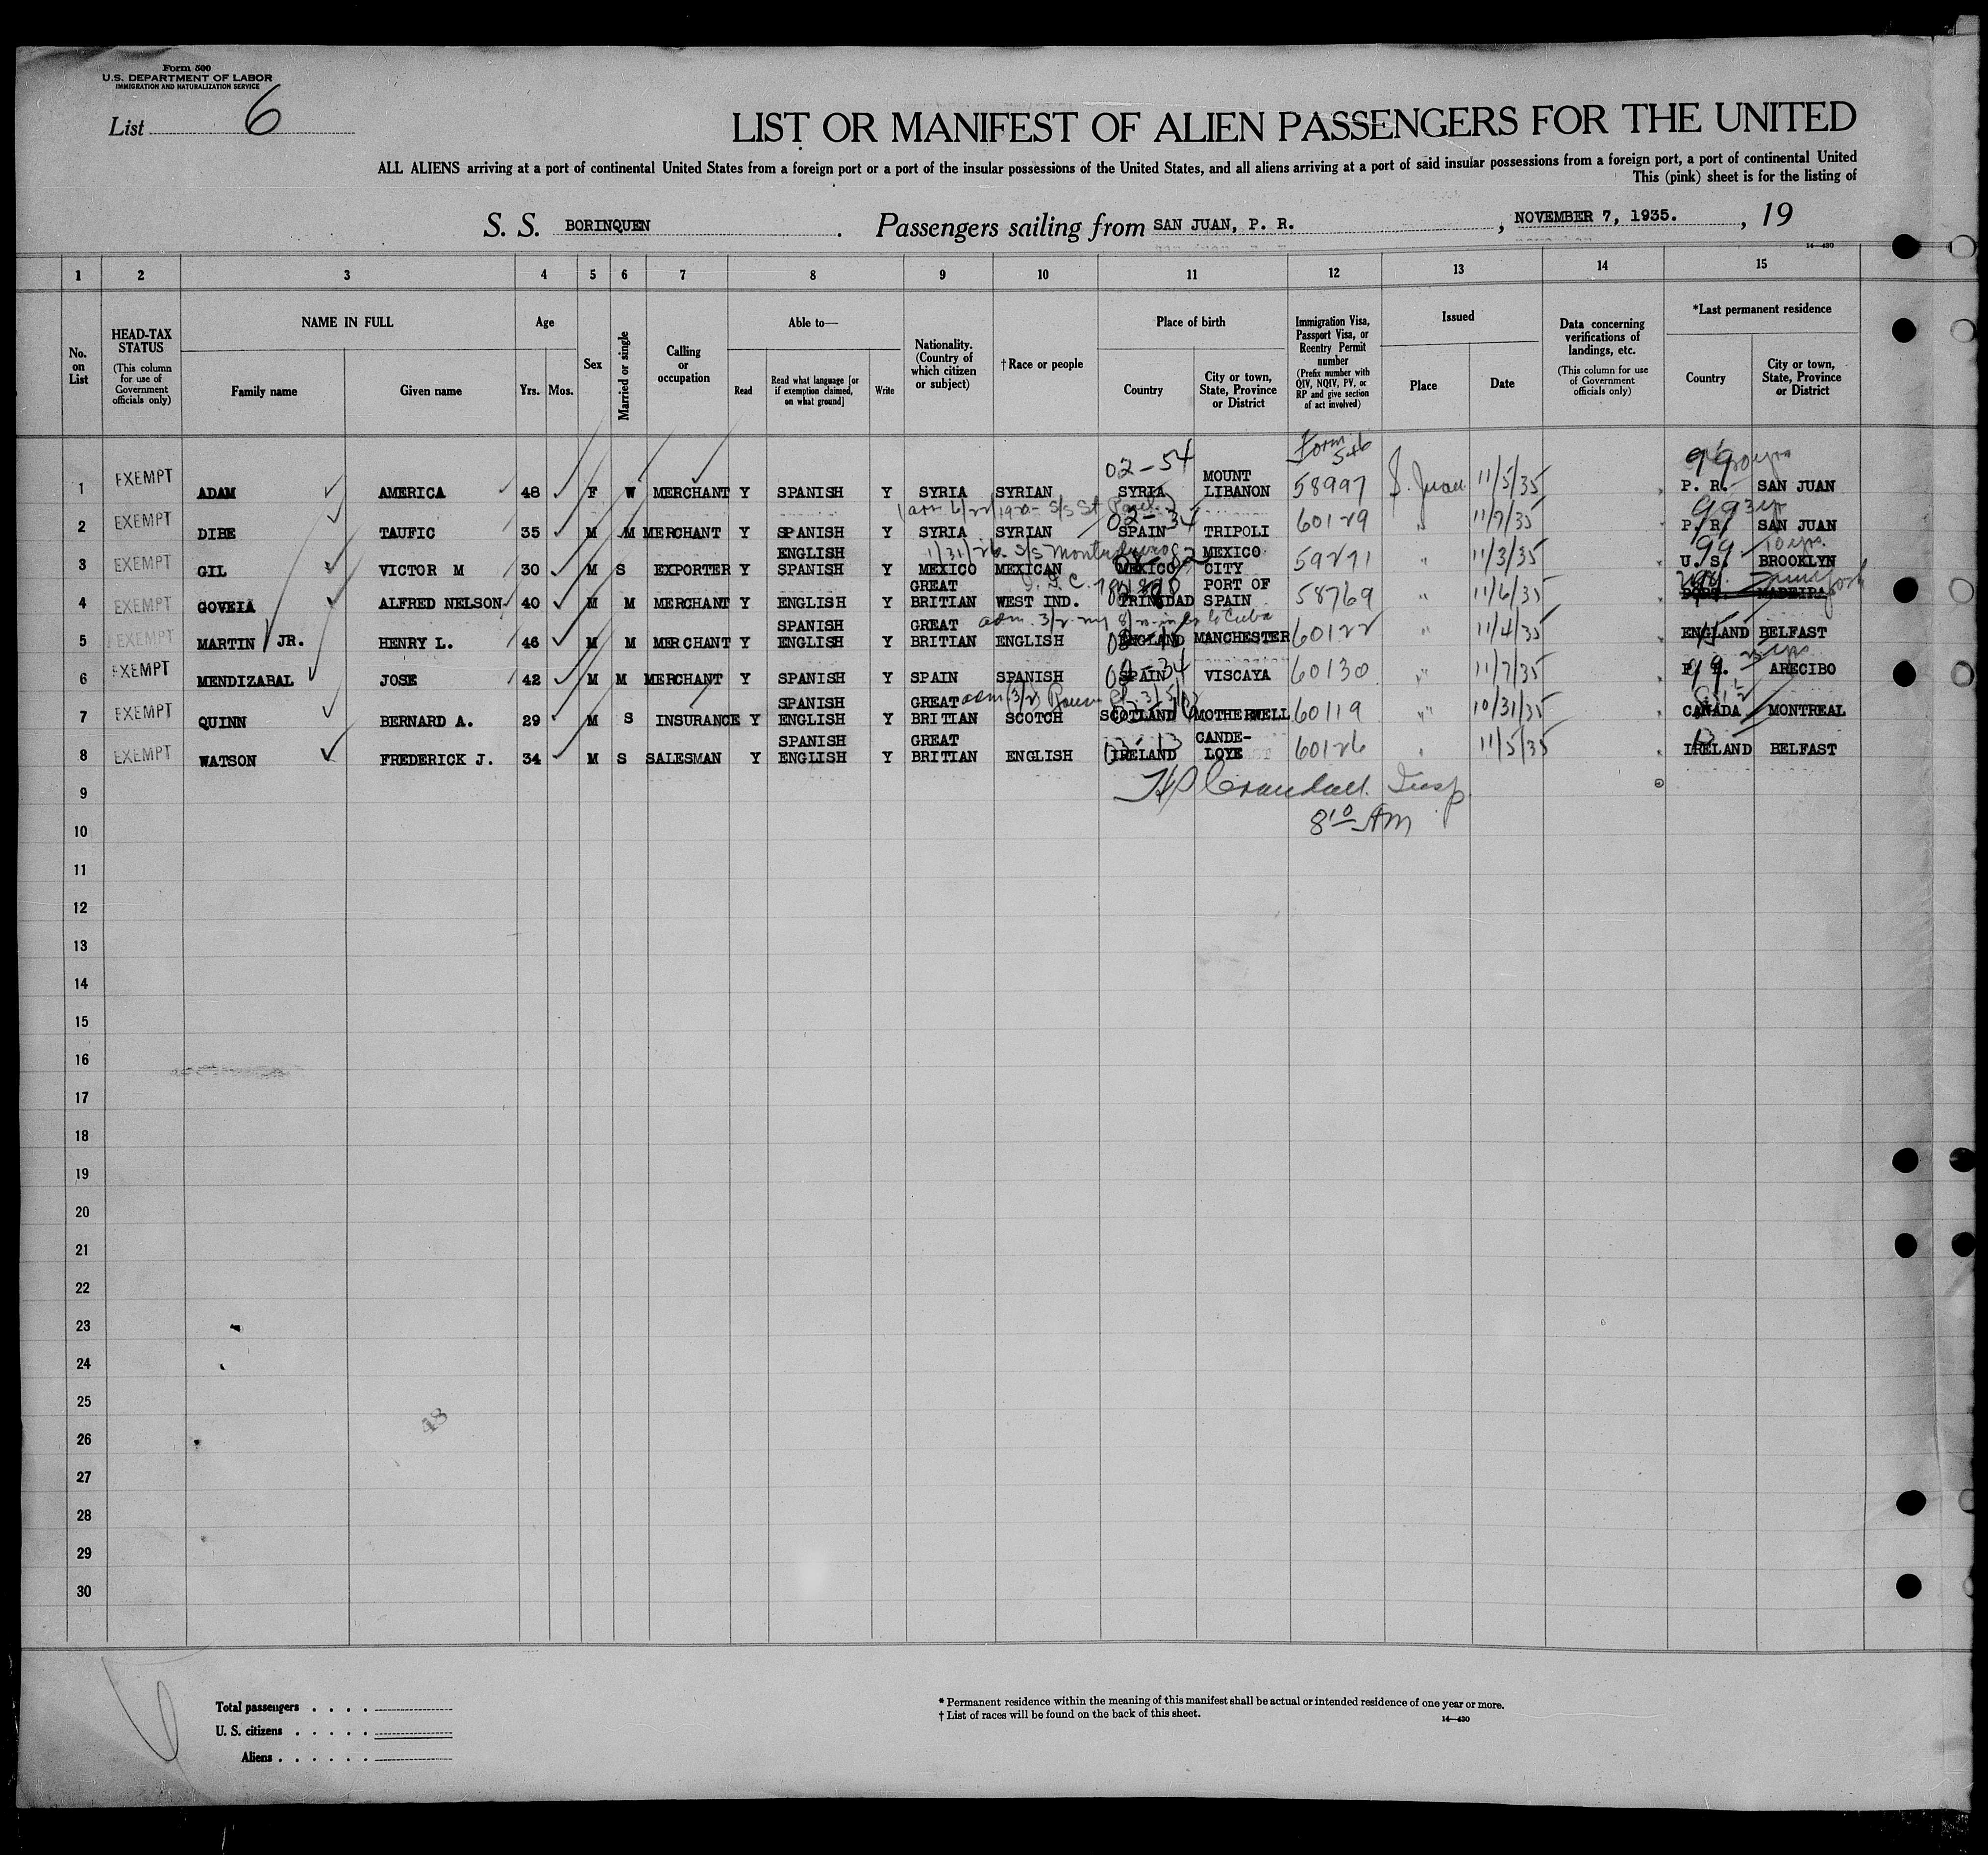 Form 500
U.S. DEPARTMENT OF LABOR
IMMIGRATION AND NATURALIZATION SERVICE
List 6
LIST OR MANIFEST OF ALIEN PASSENGERS FOR THE UNITED
ALL ALIENS arriving at a port of continental United States from a foreign port or a port of the insular possessions of the United States, and all aliens arriving at a port of said insular possessions from a foreign port, a port of continental United
This (pink) sheet is for the listing of
S. S. BORINQUEN . Passengers sailing from SAN JUAN, P. R. , NOVEMBER 7, 1935. , 19
14—430
1 2 3 4 5 6 7 8 9 10 11 12 13 14 15
No. on List
HEAD-TAX STATUS
(This column for use of Government officials only)
NAME IN FULL
Family name
Given name
Age
Yrs. Mos.
Sex
Married or single
Calling or occupation
Able to—
Read
Read what language [or if exemption claimed, on what ground]
Write
Nationality. (Country of which citizen or subject)
†Race or people
Place of birth
Country
City or town, State, Province or District
Immigration Visa, Passport Visa, or Reentry Permit number
(Prefix number with QIV, NQIV, PV, or RP and give section of act involved)
Issued
Place
Date
Data concerning verifications of landings, etc.
(This column for use of Government officials only)
*Last permanent residence
Country
City or town, State, Province or District
Form 546
02-54
99
1 EXEMPT ADAM AMERICA 48 F W MERCHANT Y SPANISH Y SYRIA SYRIAN SYRIA MOUNT LIBANON 58997 S. Juan 11/5/35 P. R. SAN JUAN
02-34
99 3 yr
2 EXEMPT DIBE TAUFIC 35 M M MERCHANT Y SPANISH Y SYRIA SYRIAN SPAIN TRIPOLI 60129 " 11/7/35 P. R. SAN JUAN
1/31/26 S/S
99 10 yrs.
3 EXEMPT GIL VICTOR M 30 M S EXPORTER Y ENGLISH SPANISH Y MEXICO MEXICAN MEXICO MEXICO CITY 59271 " 11/3/35 U. S. BROOKLYN
4 EXEMPT GOVEIA ALFRED NELSON 40 M M MERCHANT Y ENGLISH Y GREAT BRITIAN WEST IND. TRINIDAD PORT OF SPAIN 58769 " 11/6/35 PORT. MADEIRA
5 EXEMPT MARTIN JR. HENRY L. 46 M M MERCHANT Y SPANISH ENGLISH Y GREAT BRITIAN ENGLISH ENGLAND MANCHESTER 60122 " 11/4/35 ENGLAND BELFAST
6 EXEMPT MENDIZABAL JOSE 42 M M MERCHANT Y SPANISH Y SPAIN SPANISH SPAIN VISCAYA 60130 " 11/7/35 P. R. ARECIBO
7 EXEMPT QUINN BERNARD A. 29 M S INSURANCE Y SPANISH ENGLISH Y GREAT BRITIAN SCOTCH SCOTLAND MOTHERWELL 60119 " 10/31/35 CANADA MONTREAL
8 EXEMPT WATSON FREDERICK J. 34 M S SALESMAN Y SPANISH ENGLISH Y GREAT BRITIAN ENGLISH IRELAND CANDE-LOYE 60126 " 11/5/35 IRELAND BELFAST
9 Crandall Insp.
10 8 10 AM
11
12
13
14
15
16
17
18
19
20
21
22
23
24
25
48
26
27
28
29
30
Total passengers . . . .
U. S. citizens . . . . .
Aliens . . . . . .
* Permanent residence within the meaning of this manifest shall be actual or intended residence of one year or more.
† List of races will be found on the back of this sheet.
14—430